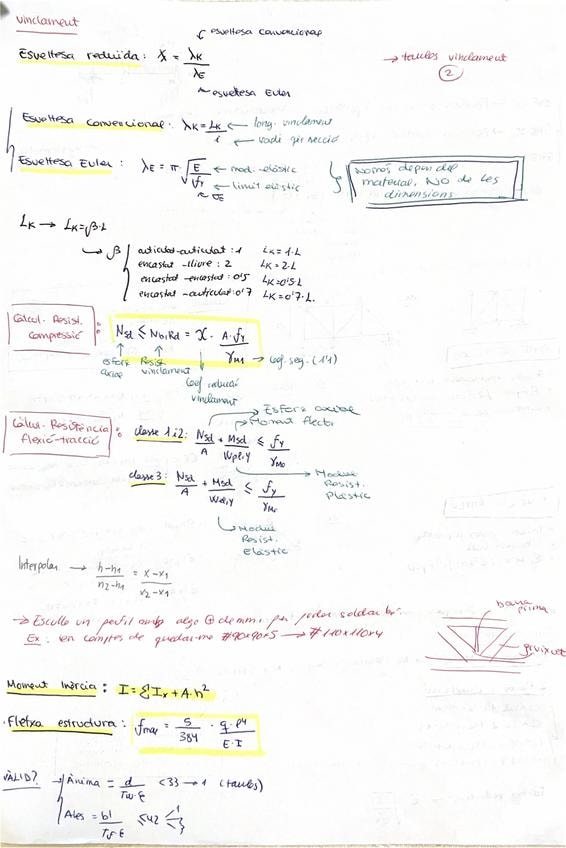 vinclament
esveltesa convencional
Esveltesa reduïda: λ = λK / λE
esveltesa Euler
→ taules vinclament
②
Esveltesa convencional: λK = LK / i ← long. vinclament
← radi gir secció
Esveltesa Euler: λE = π·√(E / fy) ← mod. elàstic
← límit elàstic
σE
Només depèn del
material, NO de les
dimensions
LK → LK = β·L
β articulat-articulat: 1 LK = 1·L
encastat-lliure: 2 LK = 2·L
encastat-encastat: 0'5 LK = 0'5·L
encastat-articulat: 0'7 LK = 0'7·L.
Càlcul. Resist. Compressió :
NSd ≤ Nb,Rd = χ · A·fy / γM1 → coef. seg. (1'1)
esforç axial
Resist. vinclament
Coef. reducció vinclament
Càlcul. Resistència flexió-tracció :
→ Esforç axial
→ Moment flector
classe 1 i 2: NSd / A + MSd / Wpl,y ≤ fy / γM0
→ Mòdul Resist. Plàstic
classe 3: NSd / A + MSd / Wel,y ≤ fy / γM0
→ Mòdul Resist. Elàstic
Interpolar → h-h1 / h2-h1 = x-x1 / x2-x1
→ Escullo un perfil amb algo ⊕ de mm, per poder soldar bé.
Ex: en comptes de quedar-me #90x90x5 → #110x110x4
barra prima
gruixut
Moment Inèrcia: I = Σ Ix + A·h²
Fletxa estructura: fmax = 5 / 384 · q·l⁴ / E·I
VÀLID? Ànima = d / Tw·ε <33 → 1 (taules)
Ales = b1 / Tf·ε ≤42 1 2 3